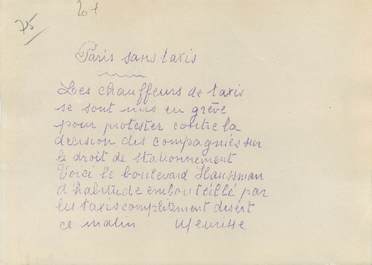 75
201
Paris sans taxis
Les chauffeurs de taxis
se sont mis en grève
pour protester contre la
décision des compagnies sur
le droit de stationnement
Voici le boulevard Haussman
d'habitude embouteillé par
les taxis completment désert
ce matin Meurisse